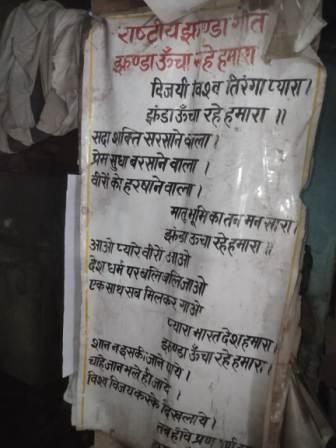 राष्ट्रीय झण्डा गीत
झण्डा ऊँचा रहे हमारा
विजयी विश्व तिरंगा प्यारा।
झंडा ऊँचा रहे हमारा ॥
सदा शक्ति सरसाने वाला।
प्रेम सुधा बरसाने वाला।
वीरों को हरषाने वाला।
मातृभूमि का तन मन सारा।
झंडा ऊँचा रहे हमारा ॥
आओ प्यारे वीरों आओ
देश धर्म पर बलि बलि जाओ
एक साथ सब मिलकर गाओ
प्यारा भारत देश हमारा
झण्डा ऊँचा रहे हमारा,
शान न इसकी जाने पाये।
चाहे जान भले ही जाये।
विश्व विजय करके दिखलाये।
तब होवे प्रण